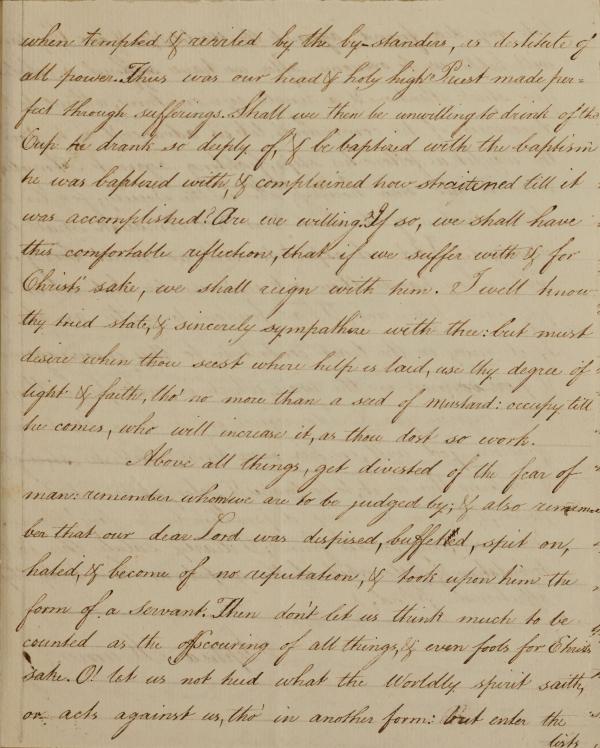 when tempted & reviled by the by-standers, as destitute of
all power. Thus was our head & holy high Priest made per=
fect through sufferings. Shall we then be unwilling to drink of the
Cup he drank so deeply of, & be baptized with the baptism
he was baptized with, & complained how straitened till it
was accomplished? Are we willing? If so, we shall have
this comfortable reflection, that if we suffer with & for
Christ's sake, we shall reign with him. I well know
thy tried state, & sincerely sympathize with thee: but must
desire when thou seest where help is laid, use thy degree of
light & faith, tho' no more than a seed of mustard: occupy till
he comes, who will increase it, as thou dost so work.
Above all things, get divested of the fear of
man: remember whom we are to be judged by; & also remem
ber that our dear Lord was dispised, buffetted, spit on,
hated, & become of no reputation, & took upon him the
form of a Servant. Then don't let us think much to be
counted as the offscouring of all things, & even fools for Christs
sake. O! let us not heed what the Worldly spirit saith,
or acts against us, tho' in another form: but enter the
lists